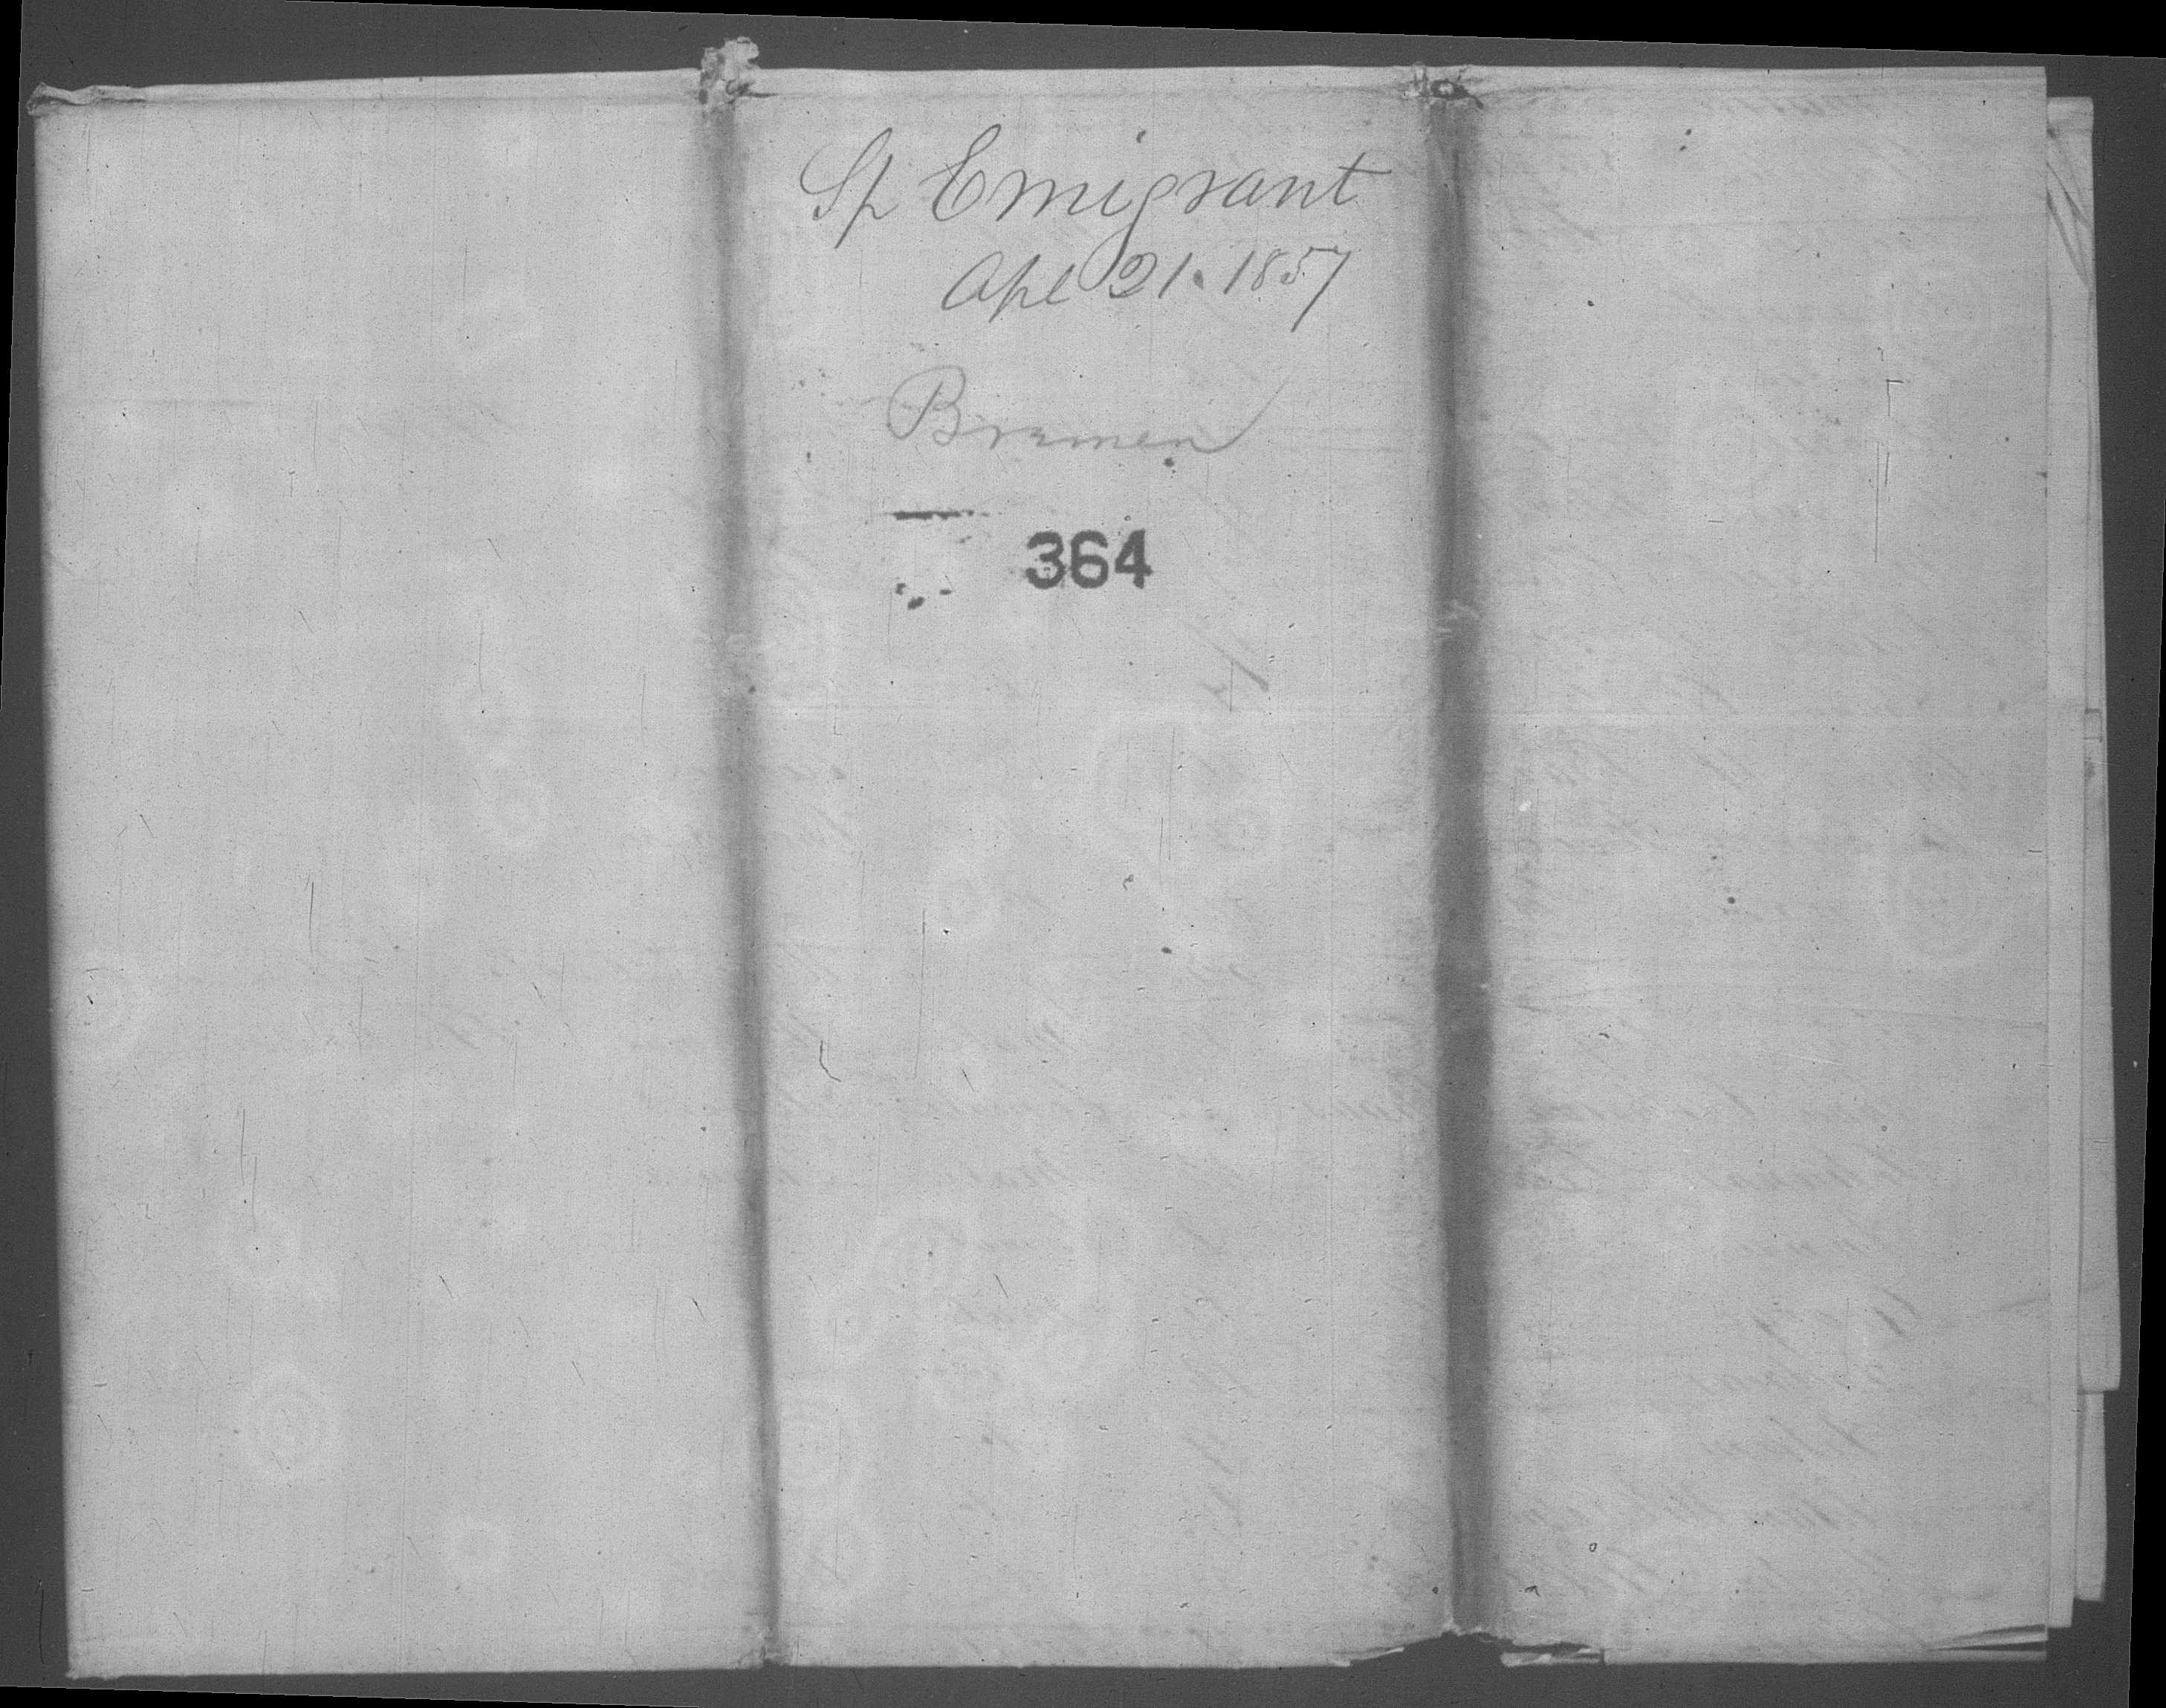 Sp Emigrant
Apl 21. 1857
Bremen
364